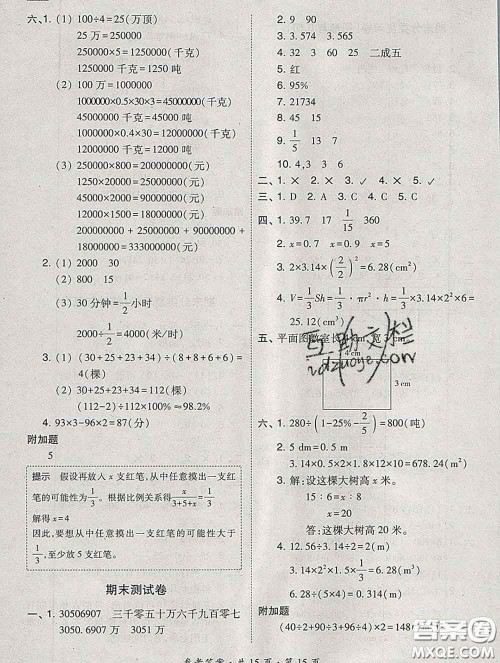 六、1. (1) 100÷4＝25(万顶)
25 万＝250000
250000×5＝1250000(千克)
1250000 千克＝1250 吨
(2) 100 万＝1000000
1000000×0.5×30×3＝45000000(千克)
45000000 千克＝45000 吨
1000000×0.4×30＝12000000(千克)
12000000 千克＝12000 吨
(3) 250000×800＝200000000(元)
1250×20000＝25000000(元)
45000×2000＝90000000(元)
12000×1500＝18000000(元)
200000000 + 25000000 + 90000000 +
18000000＝333000000(元)
2. (1) 2000 30
(2) 800 15
(3) 30 分钟＝1/2小时
2000÷1/2＝4000(米)
3. (1) (30+25+23+34)÷(8+6+4+6)＝
4(棵)
(2) 30+25+23+34＝112(棵)
(112－2)÷112×100%≈98.2%
4. 93×3－96×2＝87(分)
附加题
5
提示 假设再放入 x 支红笔，从中任意摸出一支红
笔的可能性为1/3。根据比例关系得x/(3+5+x)＝1/3
解得 x＝4
因此，要想从中任意摸出一支红笔的可能性大于
1/3，至少放 5 支红笔。
期末测试卷
一、1. 30506907 三千零五十万六千九百零七
3050.6907 万 3051 万
参考答案·共 15 页·第 15 页
2. 9 90
3. 3.574 3.565
4. 32 3 60 25 二成五
5. 红
6. 95%
7. 21734
8. 45 15
9. 1/5 13
10. 4,3 3 6
二、1. × 2. × 3. ✓ 4. × 5. ✓
三、1. D 2. A 3. C 4. B 5. C
四、1. 39.7 17 1/15 360
2. x＝0.7 x＝0.9 x＝5
3. 2×3.14×(2/2)²＝6.28(cm²)
4. V＝1/3Sh＝1/3·πr²·h＝1/3×3.14×2²×6＝
25.12(cm³)
五、平面图教室长4 cm，宽 3 cm。
4 cm
3 cm
互助文栏
com
六、1. 280÷(1－25%－2/5)＝800(吨)
2. 5 dm＝0.5 m
3. 解：设这棵大树高 x 米。
15∶6＝x∶8
x＝20
答：这棵大树高 20 米。
附加题
(40÷2＋90÷3＋96÷1)×2＝
答案圈
MXQE.COM